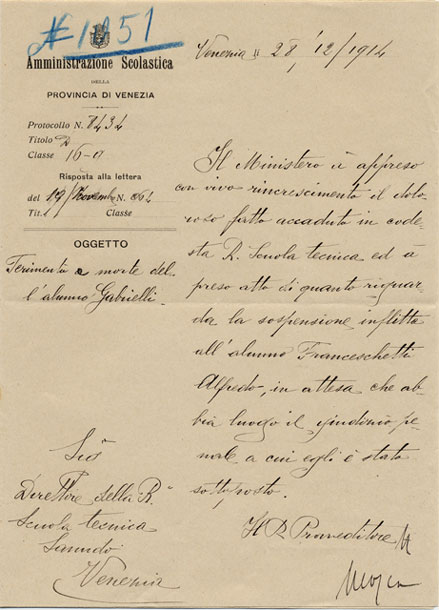 # 1851
Amministrazione Scolastica
DELLA
PROVINCIA DI VENEZIA
Protocollo N. 8434
Titolo 2
Classe 16-a
Risposta alla lettera
del 19/Novembre N. 864
Tit. Classe
OGGETTO
Ferimento e morte del-
l'alunno Gabrielli.
Venezia li 28/12/1914
Il Ministero à appreso
con vivo rincrescimento il dolo-
roso fatto accaduto in code-
sta R. Scuola tecnica ed à
preso atto di quanto riguar-
da la sospensione inflitta
all'alunno Franceschetti
Alfredo, in attesa che ab-
bia luogo il giudizio pe-
nale a cui egli è stato
sottoposto.
Il R. Provveditore
Sig.
Direttore della R.
Scuola tecnica
Sanudo
Venezia